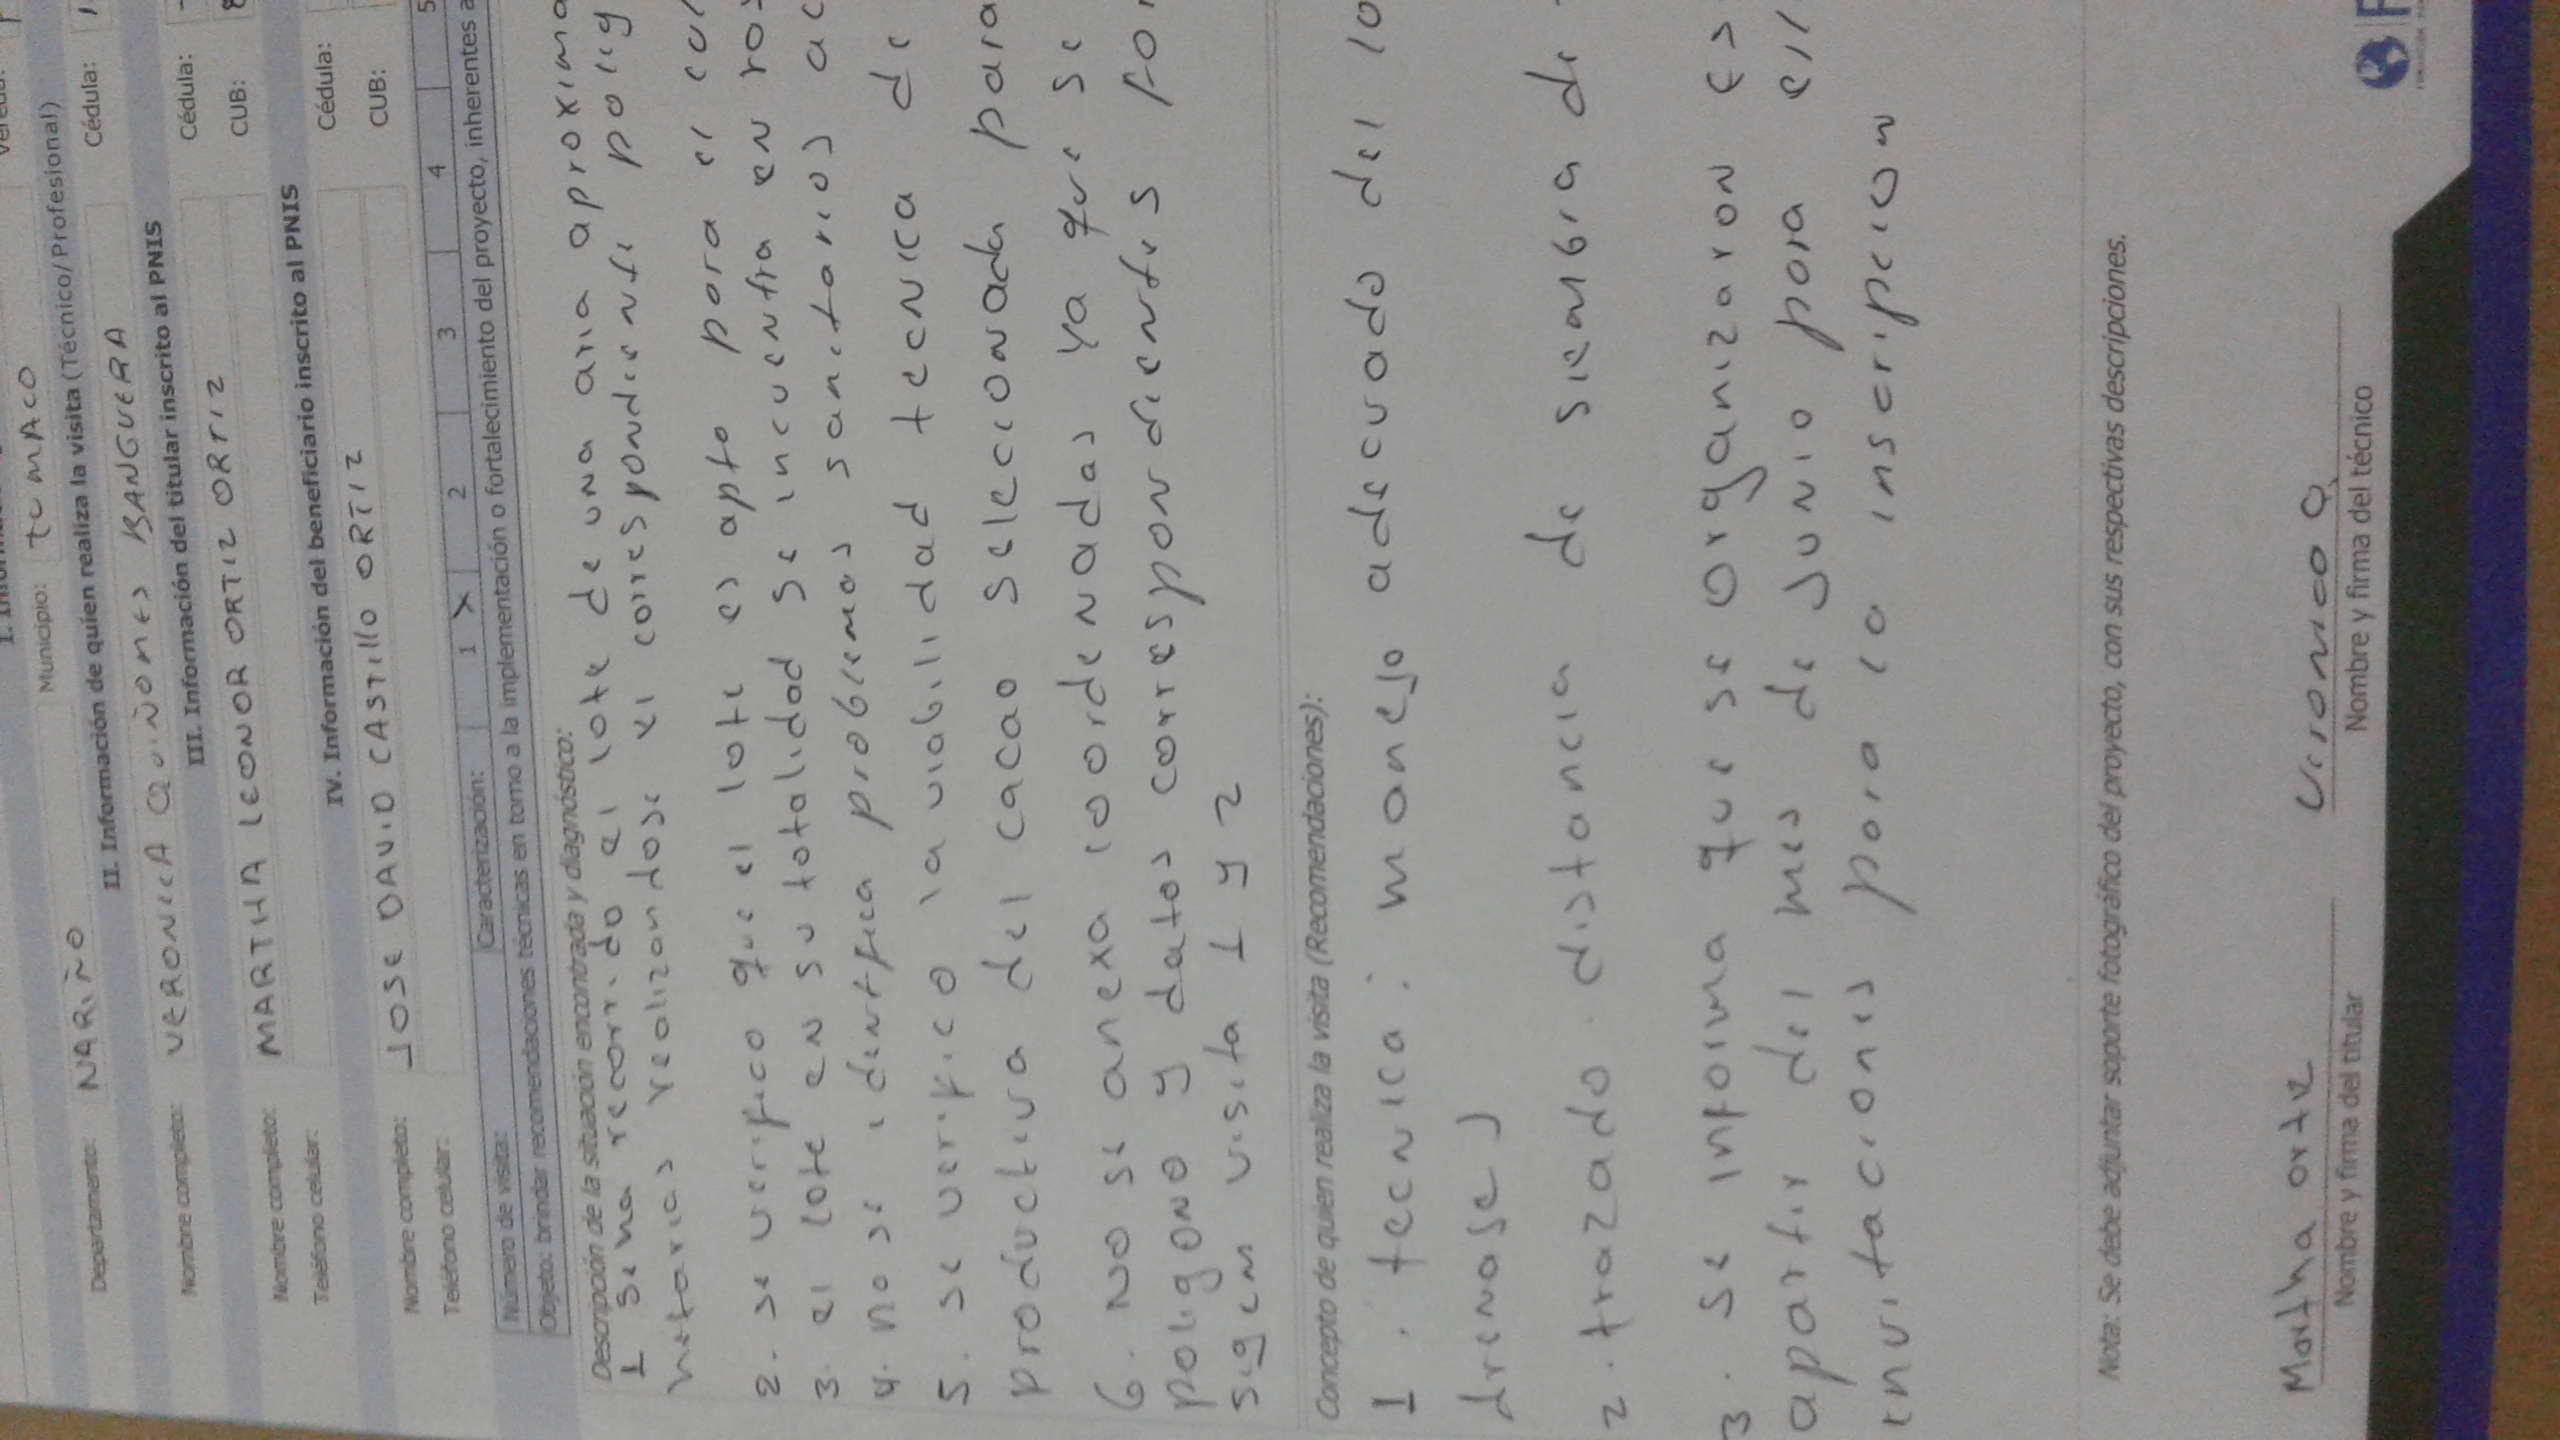 Departamento: NARIÑO Municipio: tumACO
II. Información de quien realiza la visita (Técnico/Profesional)
Nombre completo: VERONICA QUIÑONES BANGUERA Cédula:
III. Información del titular inscrito al PNIS
Nombre completo: MARTHA LEONOR ORTIZ ORTIZ Cédula:
Teléfono celular: CUB:
IV. Información del beneficiario inscrito al PNIS
Nombre completo: JOSE DAVID CASTIllO ORTIZ Cédula:
Teléfono celular: CUB:
Número de visita: Caracterización: 1 X 2 3 4 5
Objeto: brindar recomendaciones técnicas en torno a la implementación o fortalecimiento del proyecto, inherentes a
Descripción de la situación encontrada y diagnóstico:
1 se ha recorrido el lote de una aria aproxima
metarias realizandose el correspondiente polig
2. se verifico que el lote es apto para el cul
3. el lote en su totalidad se incuentra en ros
4. no se identfica problemas sanitarios ac
5. se verifico la viabilidad tecnica de
productiva del cacao selecionada para
6. No se anexa coordenadas ya que se
poligono y datos correspondientes for
sigcn visita 1 y 2
Concepto de quien realiza la visita (Recomendaciones):
1. tecnica: manejo adecuado del lo
drenase)
2. trazado. distancia de siembra de
3. se informa que se organizaron es
apartir del mes de Junio para el
invitaciones para la inscripcion
Nota: Se debe adjuntar soporte fotográfico del proyecto, con sus respectivas descripciones.
Martha ortiz Veronica Q.
Nombre y firma del titular Nombre y firma del técnico